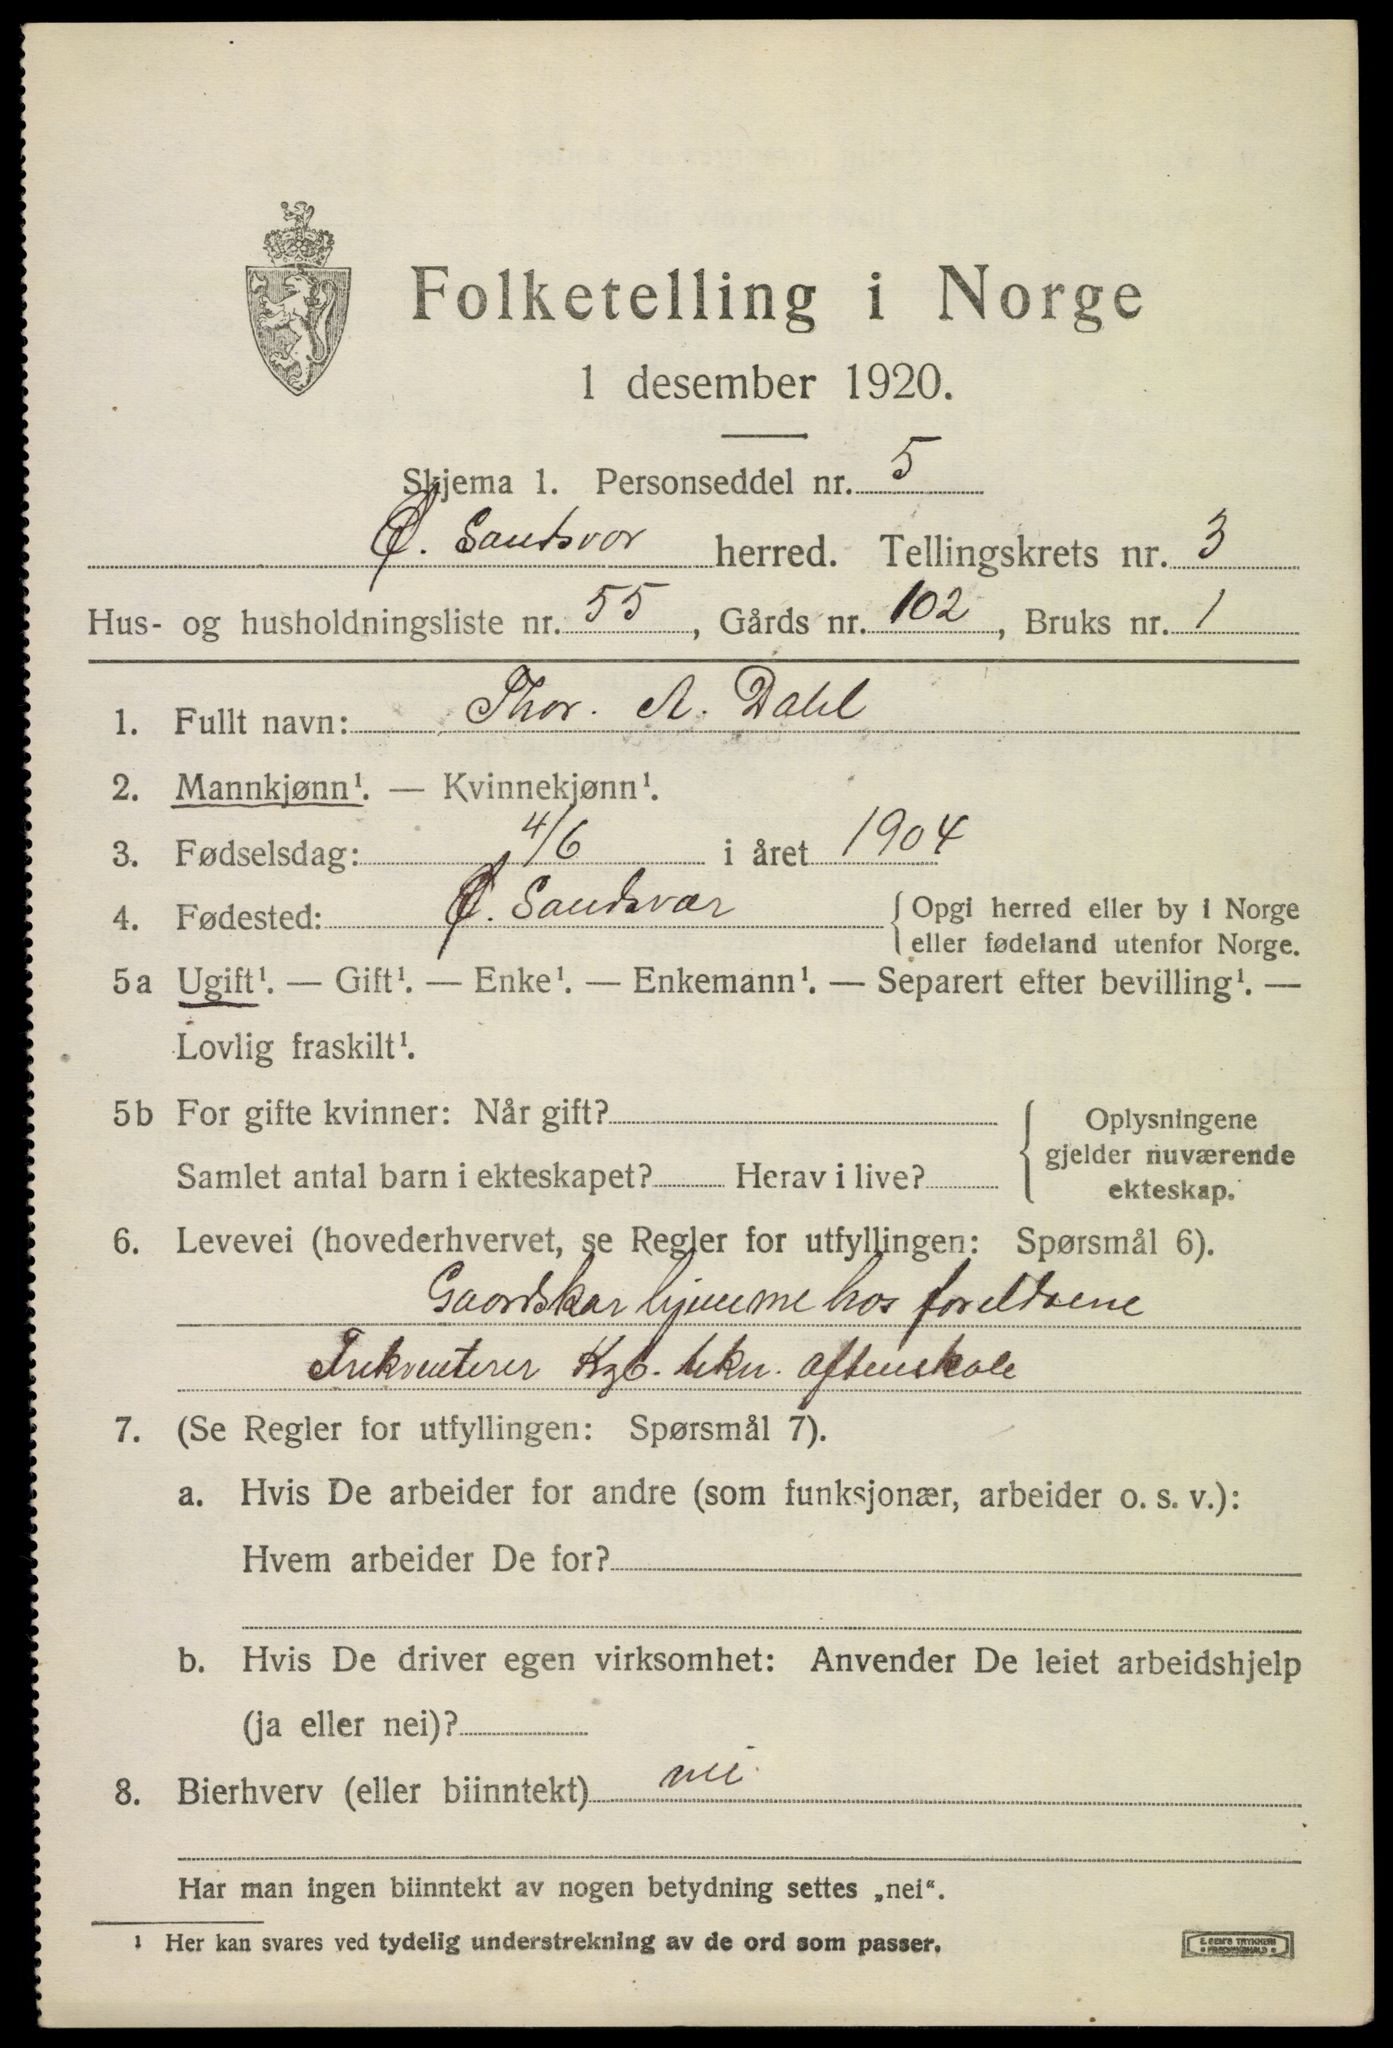 Folketelling i Norge
1 desember 1920.
Skjema 1. Personseddel nr. 5
Ø. Sandsvær herred. Tellingskrets nr. 3
Hus- og husholdningsliste nr. 55, Gårds nr. 102, Bruks nr. 1
1. Fullt navn: Thor. A. Dahl
2. Mannkjønn¹. — Kvinnekjønn¹.
3. Fødselsdag: 4/6 i året 1904
4. Fødested: Ø. Sandsvær { Opgi herred eller by i Norge
eller fødeland utenfor Norge.
5a Ugift¹. — Gift¹. — Enke¹. — Enkemann¹. — Separert efter bevilling¹. —
Lovlig fraskilt¹.
5b For gifte kvinner: Når gift?
Samlet antal barn i ekteskapet? Herav i live?
{ Oplysningene
gjelder nuværende
ekteskap.
6. Levevei (hovederhvervet, se Regler for utfyllingen: Spørsmål 6).
Gaardskar hjemme hos foreldrene
Frekventerer Kgb. tekn. aftenskole
7. (Se Regler for utfyllingen: Spørsmål 7).
a. Hvis De arbeider for andre (som funksjonær, arbeider o. s. v.):
Hvem arbeider De for?
b. Hvis De driver egen virksomhet: Anvender De leiet arbeidshjelp
(ja eller nei)?
8. Bierhverv (eller biinntekt) nei
Har man ingen biinntekt av nogen betydning settes „nei“.
¹ Her kan svares ved tydelig understrekning av de ord som passer.
E. SEM'S TRYKKERI
FREDRIKSHALD